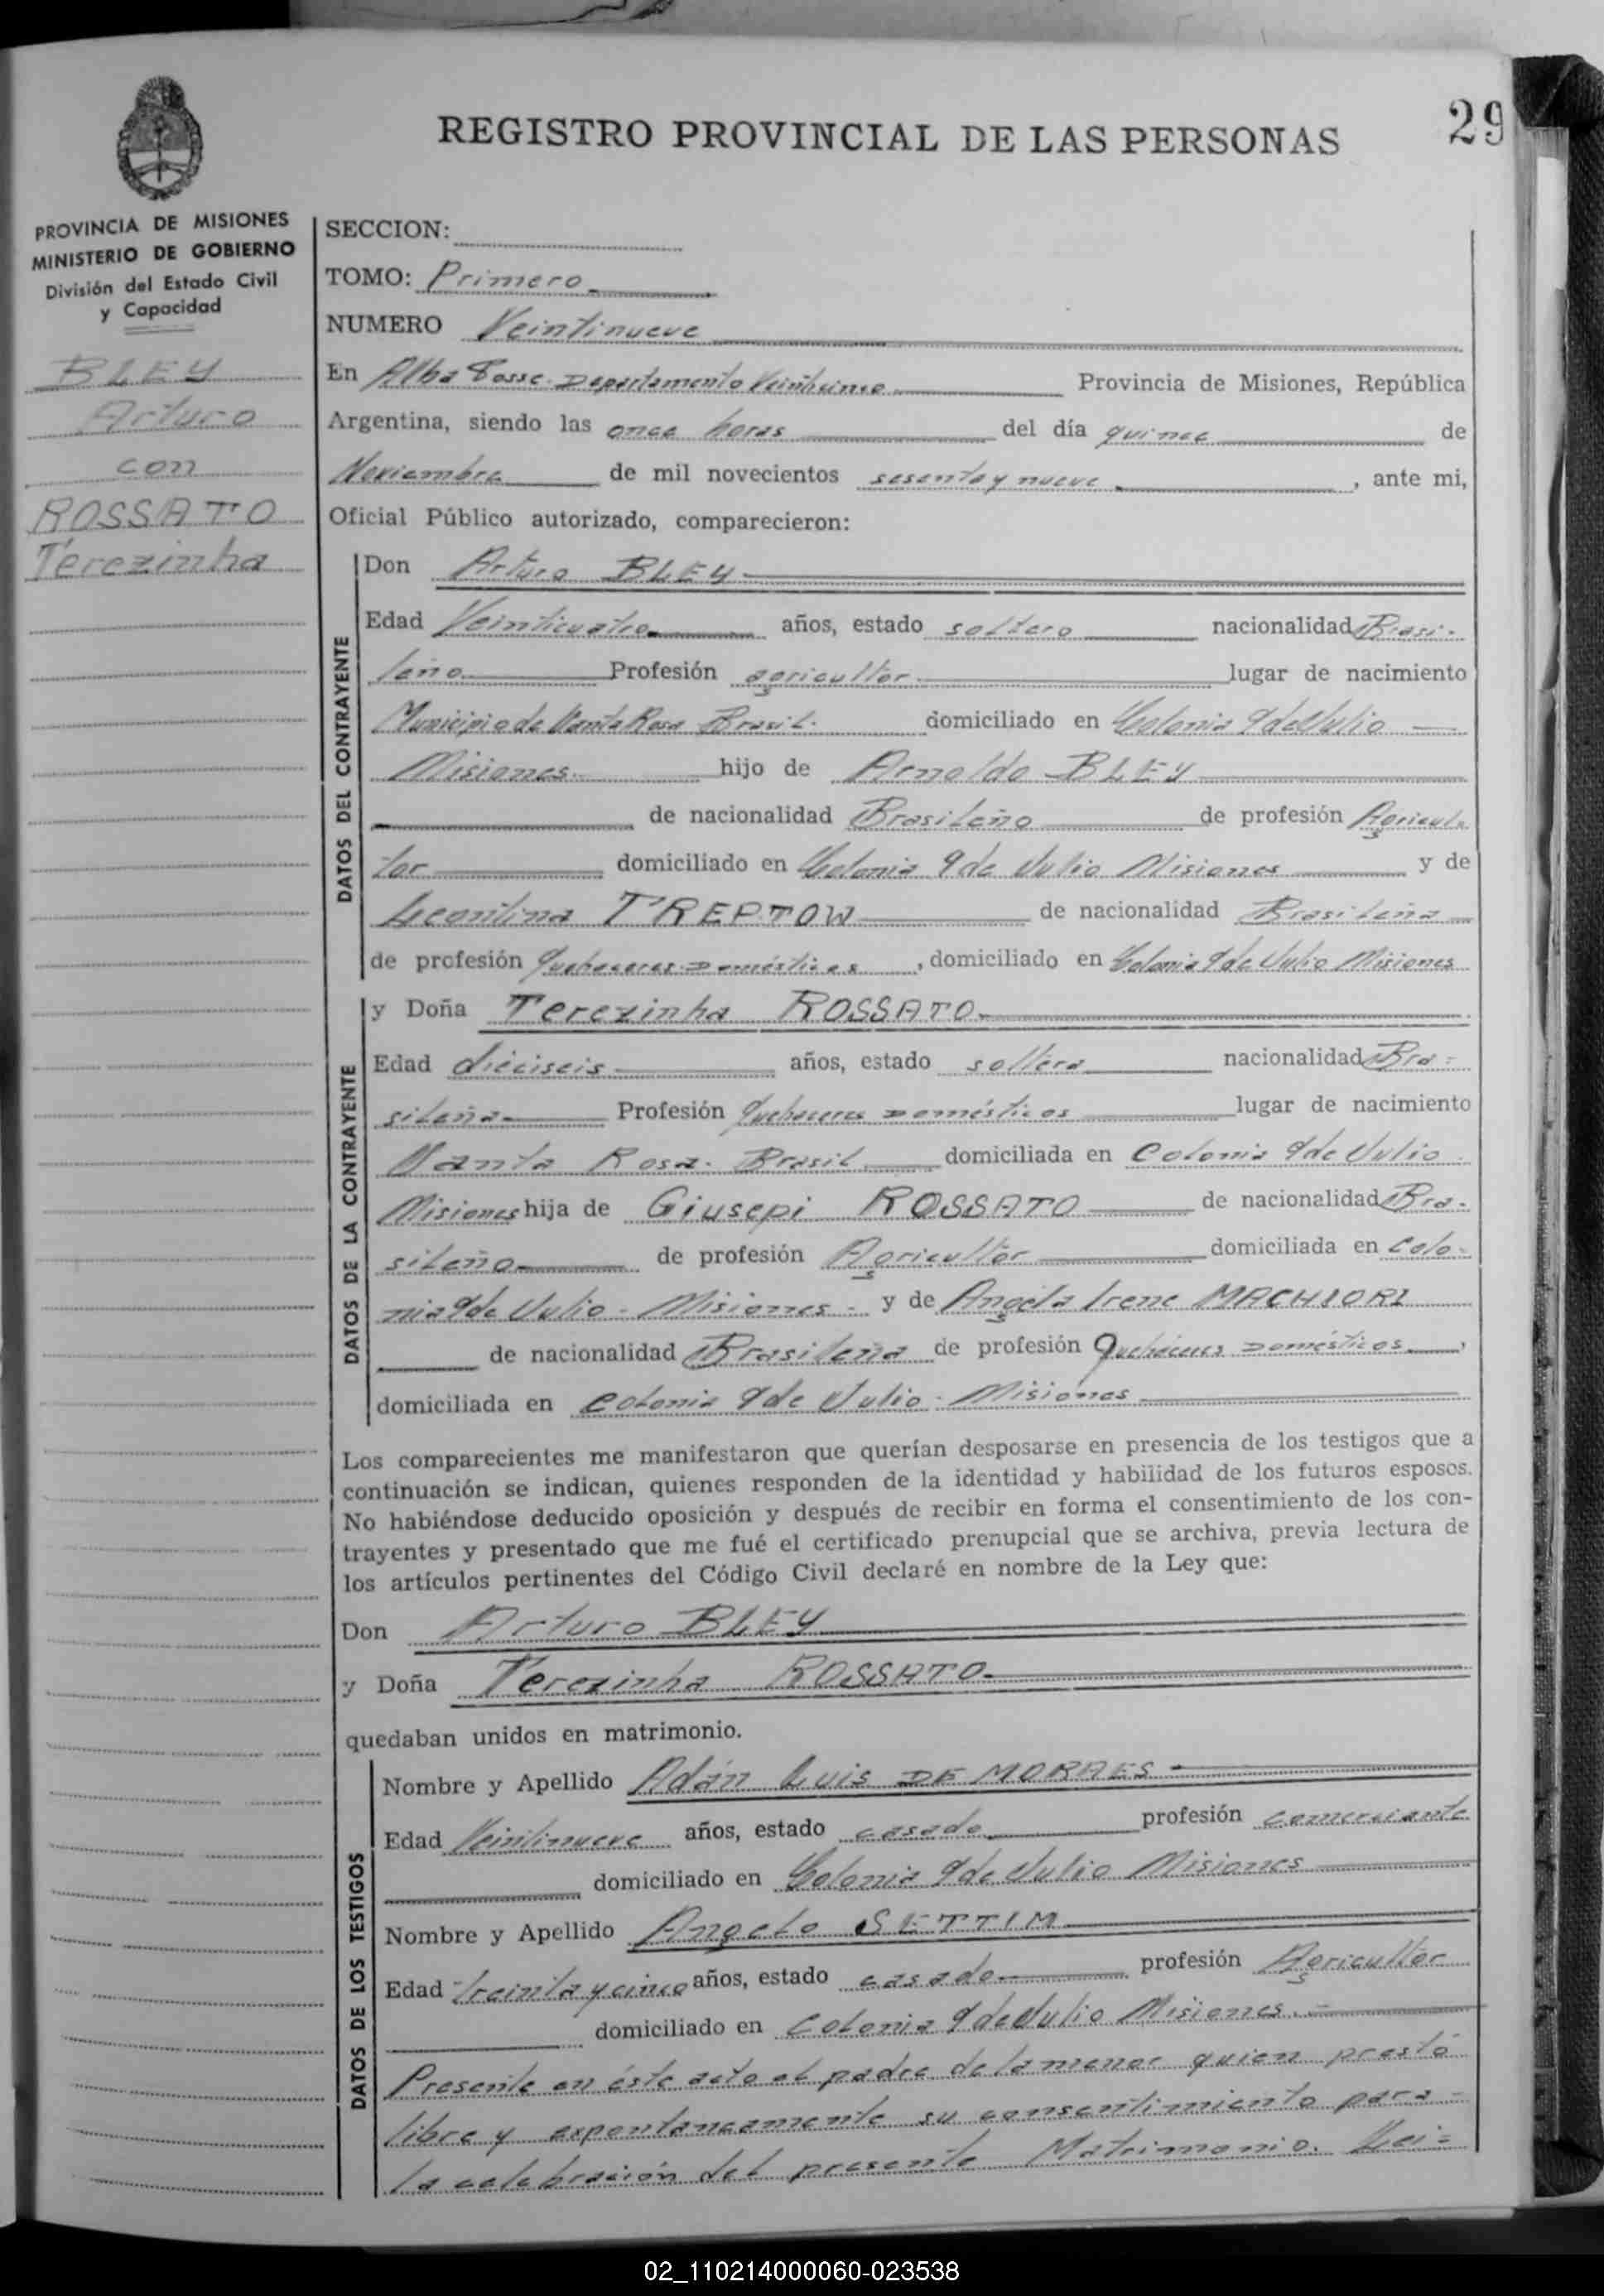 REGISTRO PROVINCIAL DE LAS PERSONAS
29
PROVINCIA DE MISIONES
MINISTERIO DE GOBIERNO
División del Estado Civil
y Capacidad
BLEY
Arturo
con
ROSSATO
Terezinha
SECCION:
TOMO: Primero
NUMERO Veintinueve
En Alba Posse. Departamento Veinticinco Provincia de Misiones, República
Argentina, siendo las once horas del día quince de
Noviembre de mil novecientos sesenta y nueve, ante mi,
Oficial Público autorizado, comparecieron:
DATOS DEL CONTRAYENTE
Don Arturo BLEY
Edad Veinticuatro años, estado soltero nacionalidad Brasi-
leño Profesión agricultor lugar de nacimiento
Municipio de Santa Rosa Brasil. domiciliado en Colonia 9 de Julio
Misiones hijo de Arnoldo BLEY
de nacionalidad Brasileño de profesión Agricul-
tor domiciliado en Colonia 9 de Julio Misiones y de
Leontina TREPTOW de nacionalidad Brasileña
de profesión Quehaceres Domésticos, domiciliado en Colonia 9 de Julio Misiones
DATOS DE LA CONTRAYENTE
y Doña Terezinha ROSSATO
Edad dieciseis años, estado soltera nacionalidad Bra-
sileña Profesión Quehaceres Domésticos lugar de nacimiento
Santa Rosa. Brasil domiciliada en Colonia 9 de Julio
Misiones hija de Giusepi ROSSATO de nacionalidad Bra-
sileño de profesión Agricultor domiciliada en Colo-
nia 9 de Julio - Misiones - y de Angela Irene MACHIORI
de nacionalidad Brasileña de profesión Quehaceres Domésticos,
domiciliada en Colonia 9 de Julio - Misiones
Los comparecientes me manifestaron que querían desposarse en presencia de los testigos que a
continuación se indican, quienes responden de la identidad y habilidad de los futuros esposos.
No habiéndose deducido oposición y después de recibir en forma el consentimiento de los con-
trayentes y presentado que me fué el certificado prenupcial que se archiva, previa lectura de
los artículos pertinentes del Código Civil declaré en nombre de la Ley que:
Don Arturo BLEY
y Doña Terezinha ROSSATO
quedaban unidos en matrimonio.
DATOS DE LOS TESTIGOS
Nombre y Apellido Adán Luis DE MORAES
Edad Veintinueve años, estado casado profesión comerciante
domiciliado en Colonia 9 de Julio Misiones
Nombre y Apellido Angelo SETTIM
Edad treinta y cinco años, estado casado profesión Agricultor
domiciliado en Colonia 9 de Julio Misiones.
Presente en éste acto el padre de la menor quien prestó
libre y expontáneamente su consentimiento para
la celebración del presente Matrimonio. Lei-
02_110214000060-023538